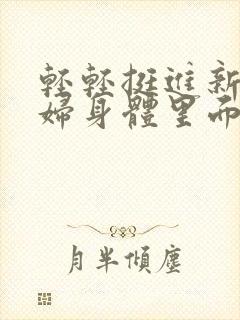 輕輕挺進新
婦身體里面
月半傾塵